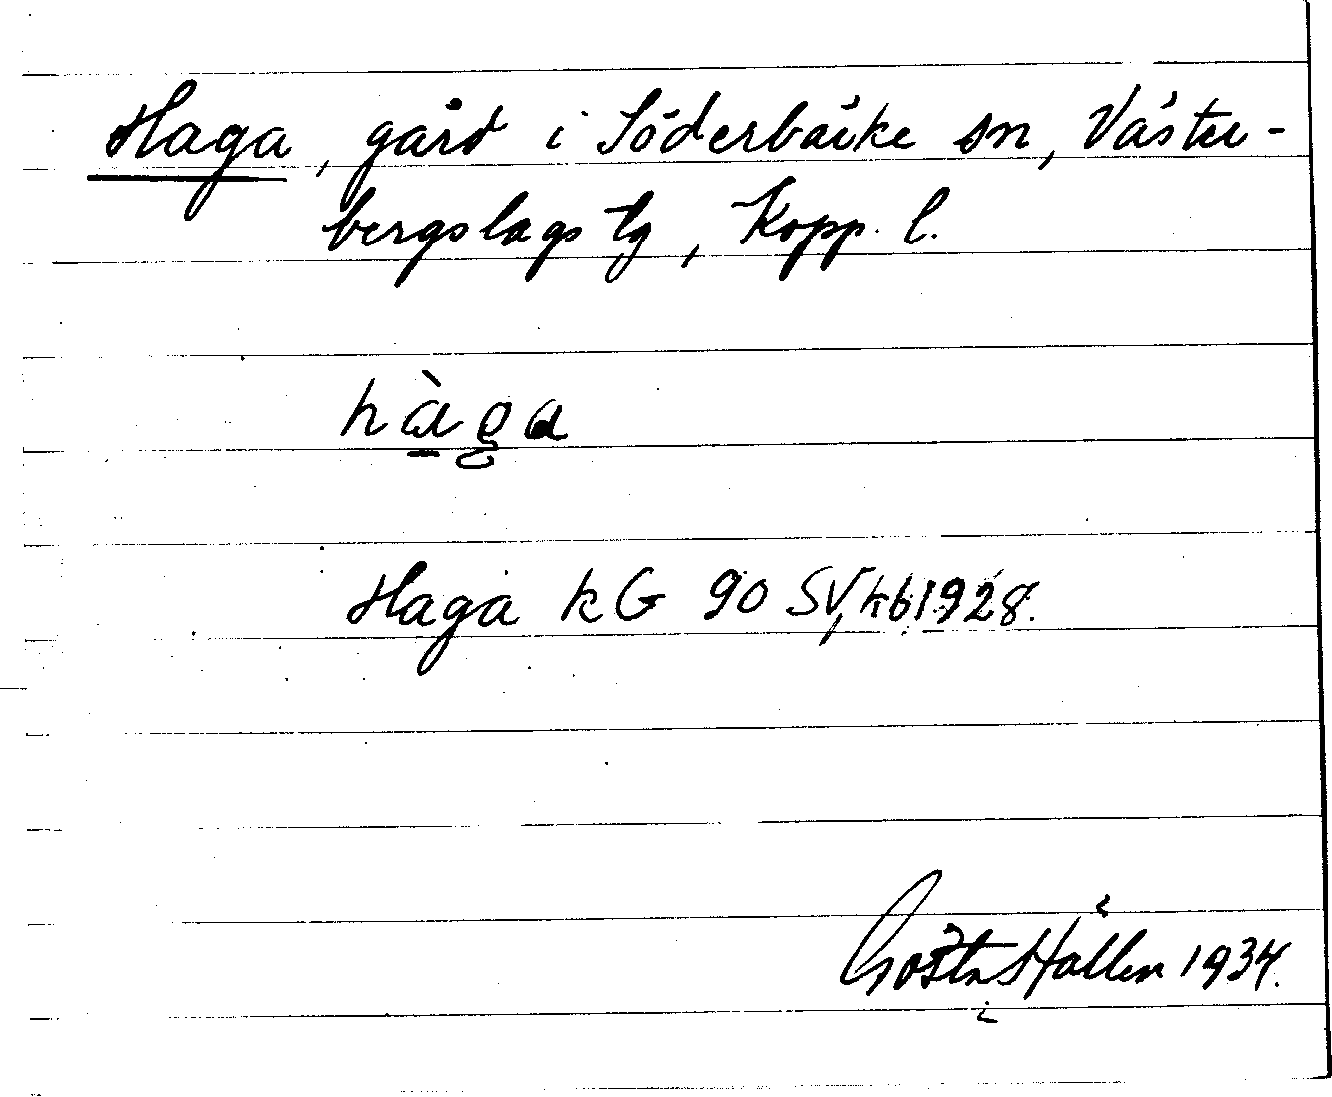 Haga, gård i Söderbärke sn, Väster-
bergslags tg, Kopp. l.
hàga
Haga kG 90 SV, kb 1928.
Gösta Hallen 1934.